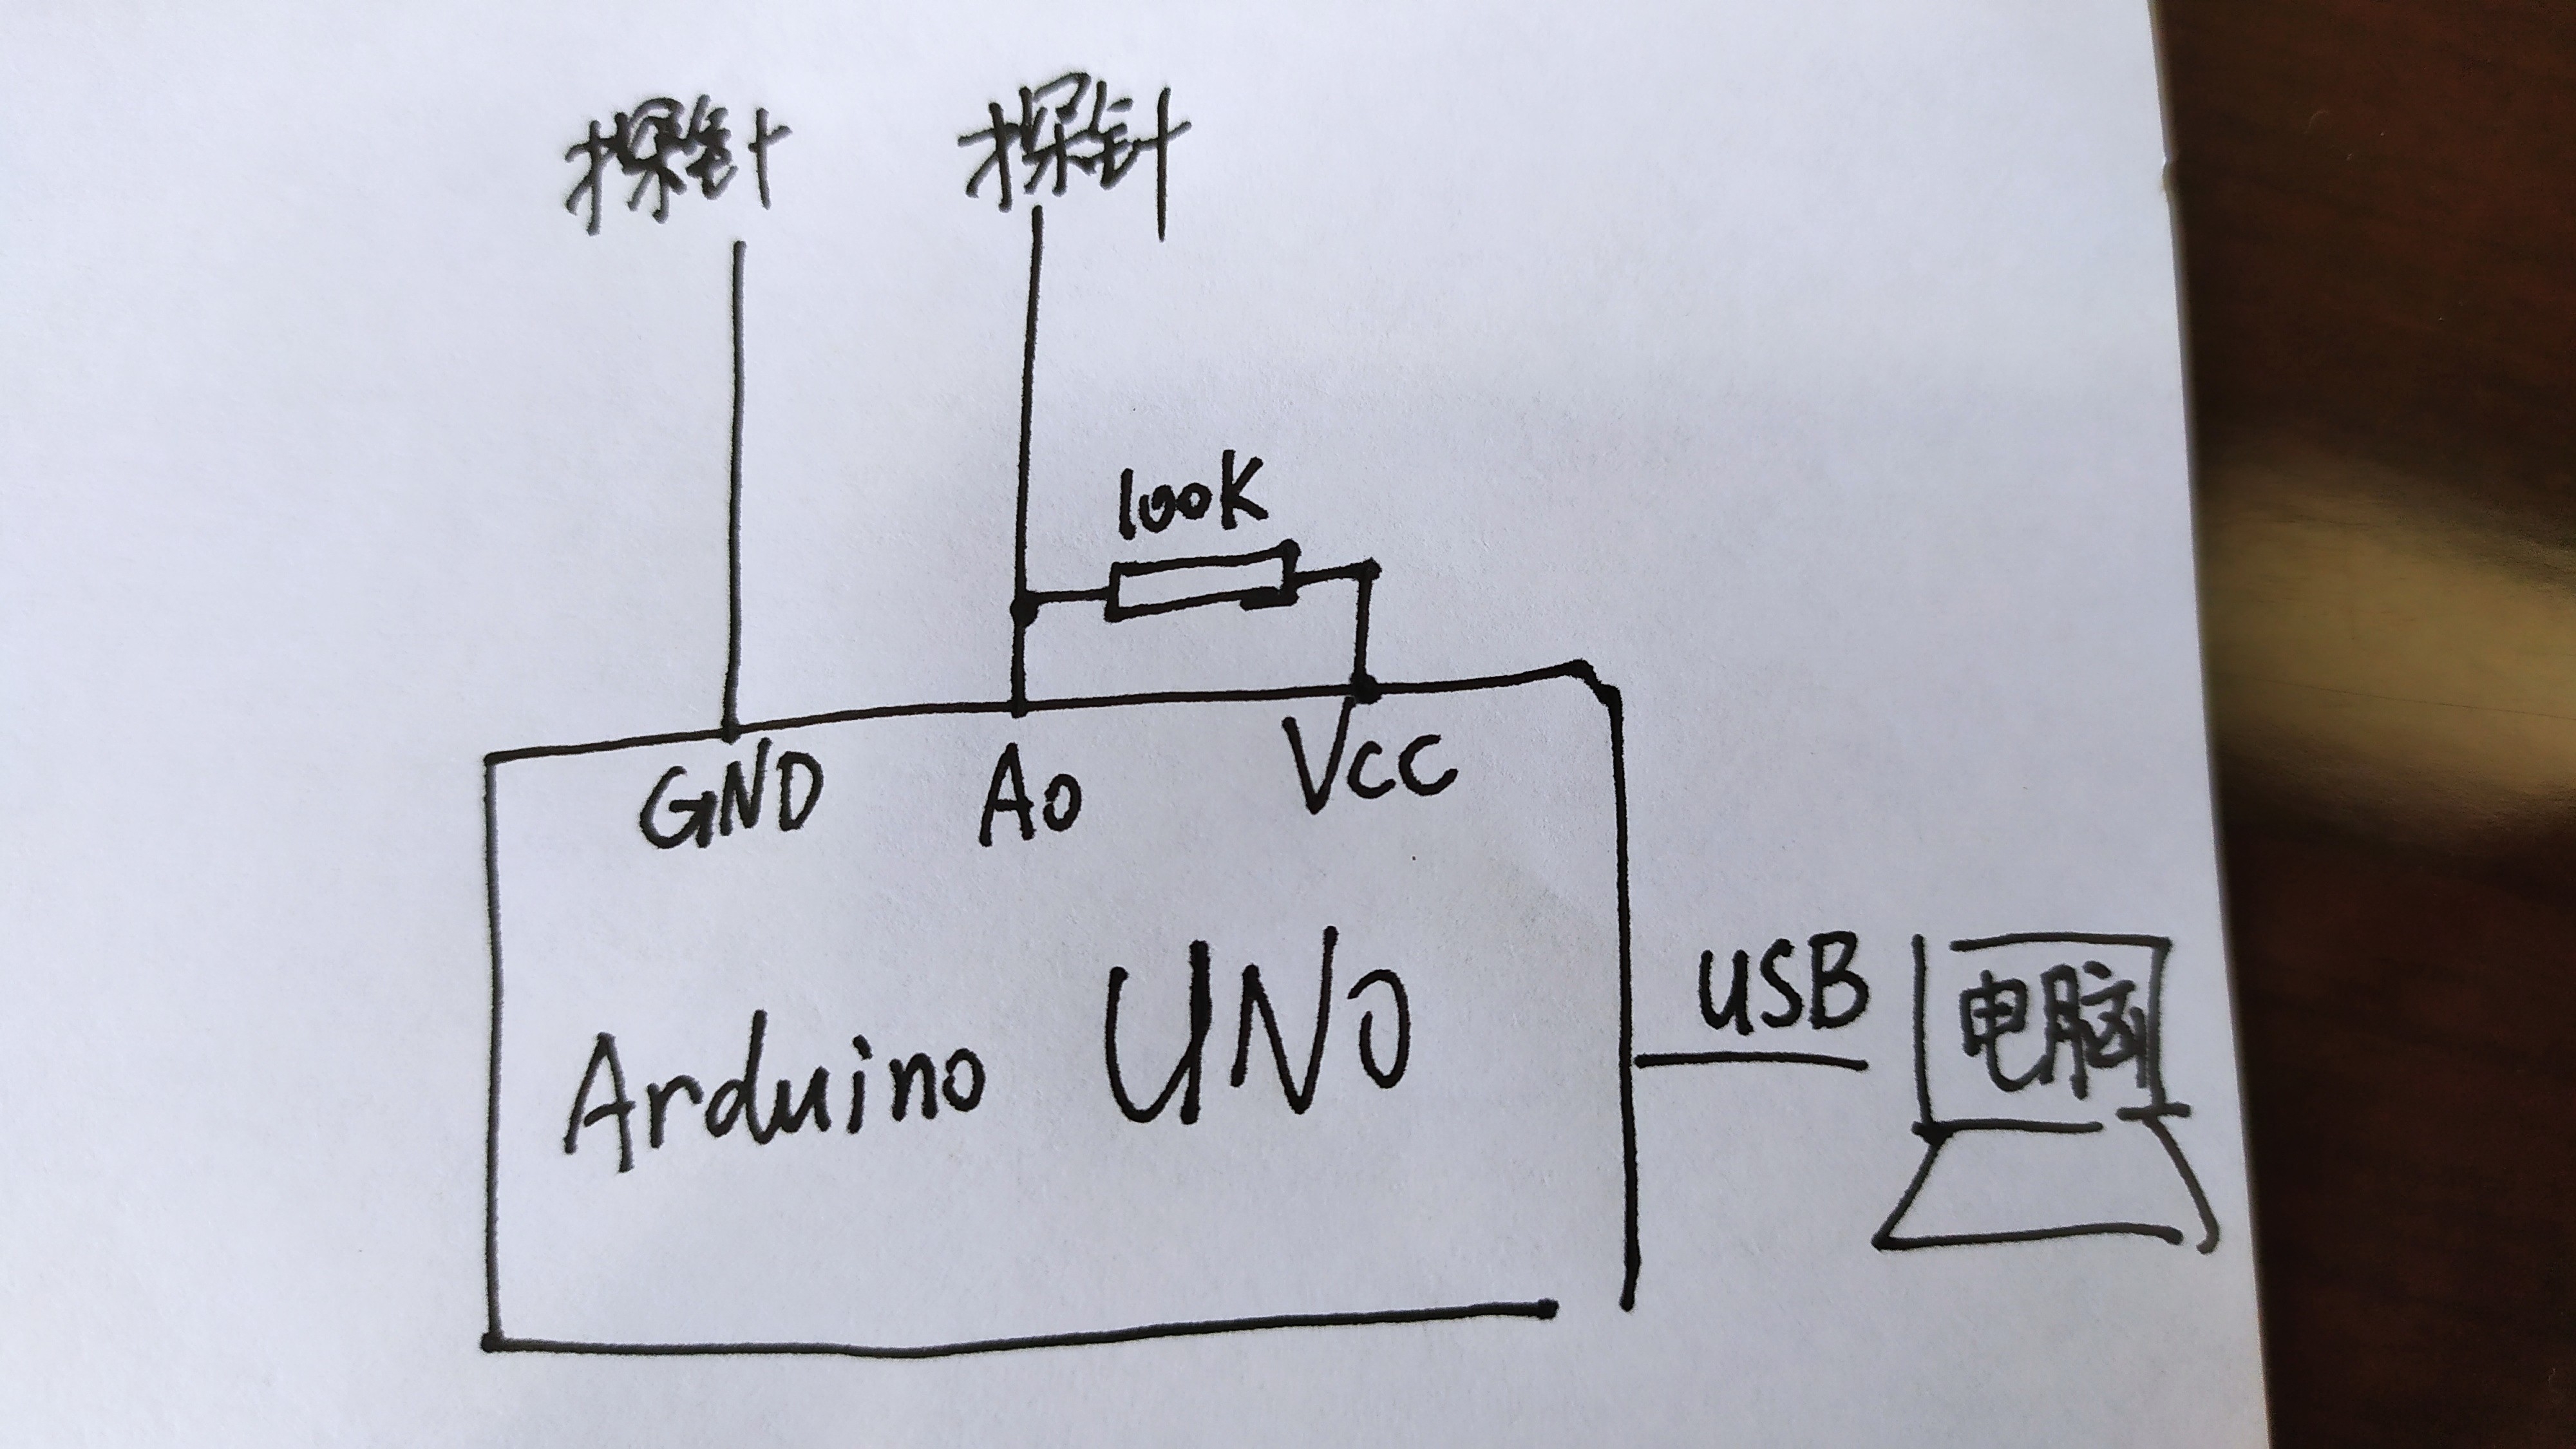 探针 探针
100K
GND A0 Vcc
Arduino UNO
USB 电脑